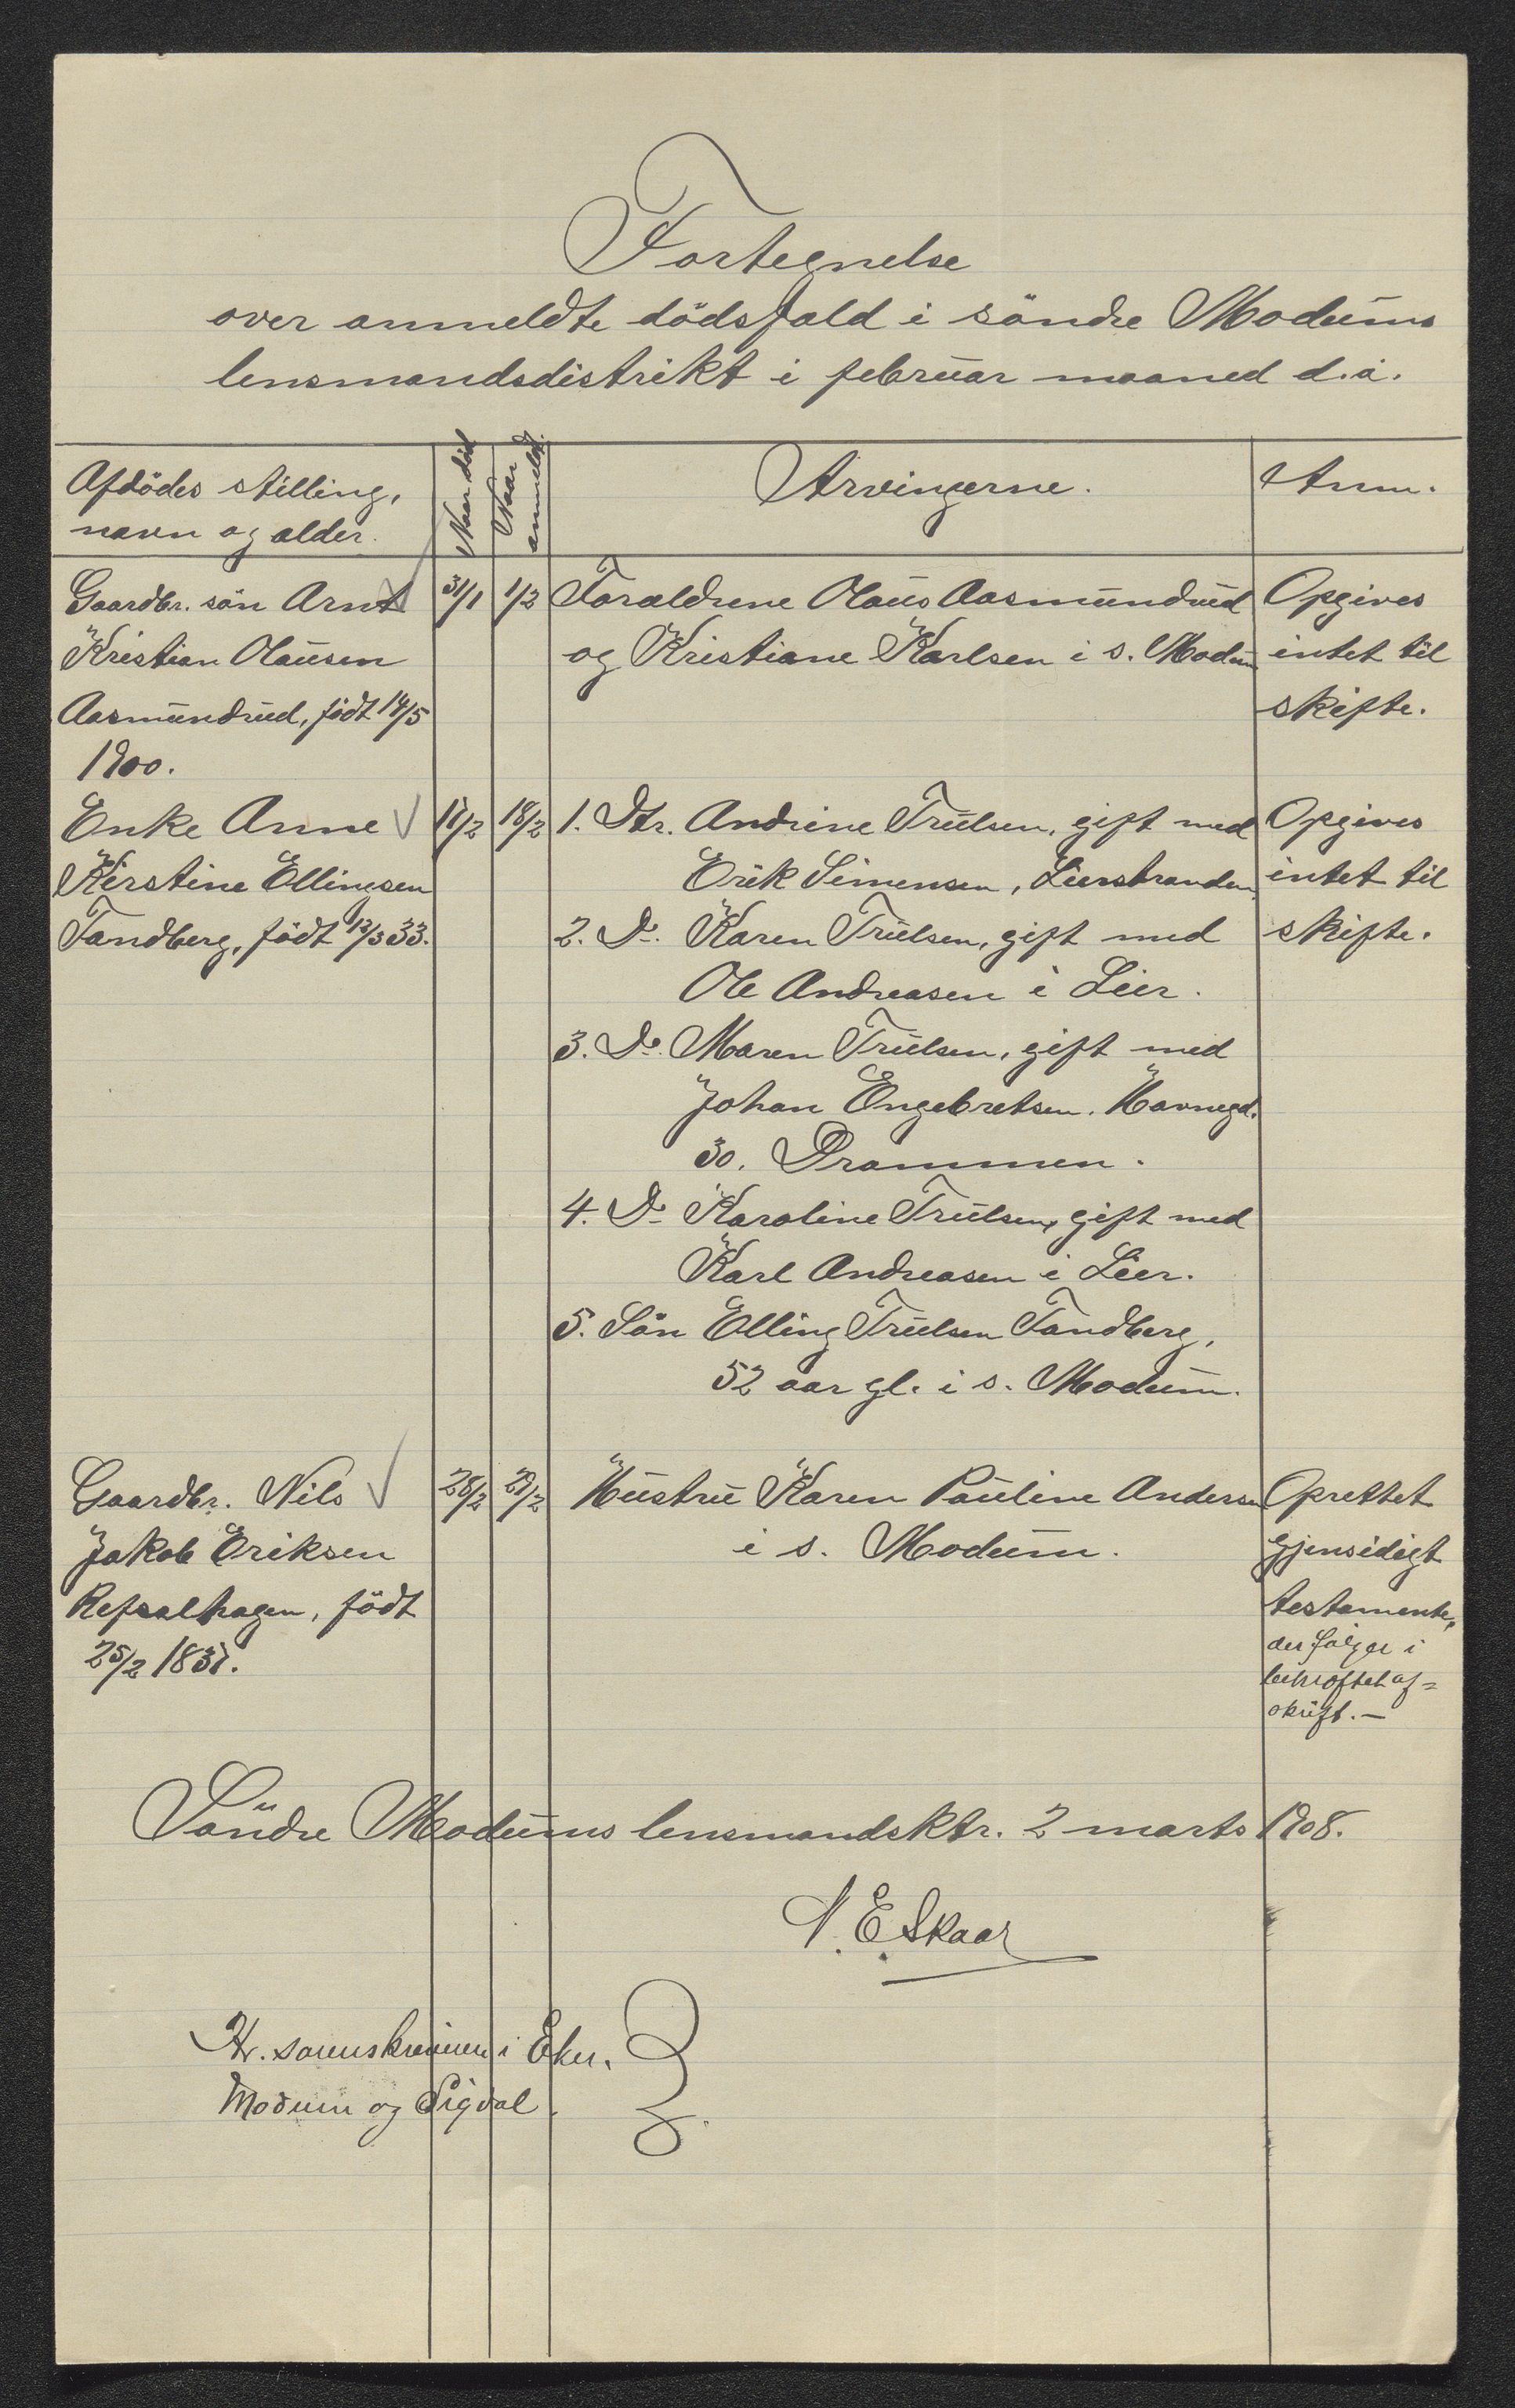 Fortegnelse
over anmeldte dödsfald i söndre Modums
lensmandsdistrikt i februar maaned d.å.
Afdödes stilling, navn og alder.
Naar död
Naar anmeldt.
Arvingerne.
Anm.
Gaardbr. sön Arnt 31/1 1/2 Foraldrene Olaus Aasmundrud Opgives
Kristian Olausen og Kristiane Karlsen i s. Modum intet til
Aasmundrud, födt 14/5 skifte.
1900.
Enke Anne 17/2 18/2 1. Dtr. Andrine Trulsen, gift med Opgives
Kirstine Ellingsen Erik Simensen, Lierstranden intet til
Tandberg, födt 12/3 33. 2. Do. Karen Trulsen, gift med skifte.
Ole Andreasen i Lier.
3. Do. Maren Trulsen, gift med
Johan Engebretsen. Havnegd.
30. Drammen.
4. Do Karoline Trulsen, gift med
Karl Andreasen i Lier.
5. Sön Elling Trulsen Tandberg,
52 aar gl. i s. Modum.
Gaardbr. Nils 28/2 29/2 Hustru Karen Pauline Andersen Oprettet
Jakob Eriksen i s. Modum. gjensidigt
Refsalhagen, födt testamente,
25/2 1837. der fölger i
bekræftet af=
skrift. —
Söndre Modums lensmandsktr. 2 marts 1908.
N. E. Skaar
Hr. sorenskriveren i Eker,
Modum og Sigdal.